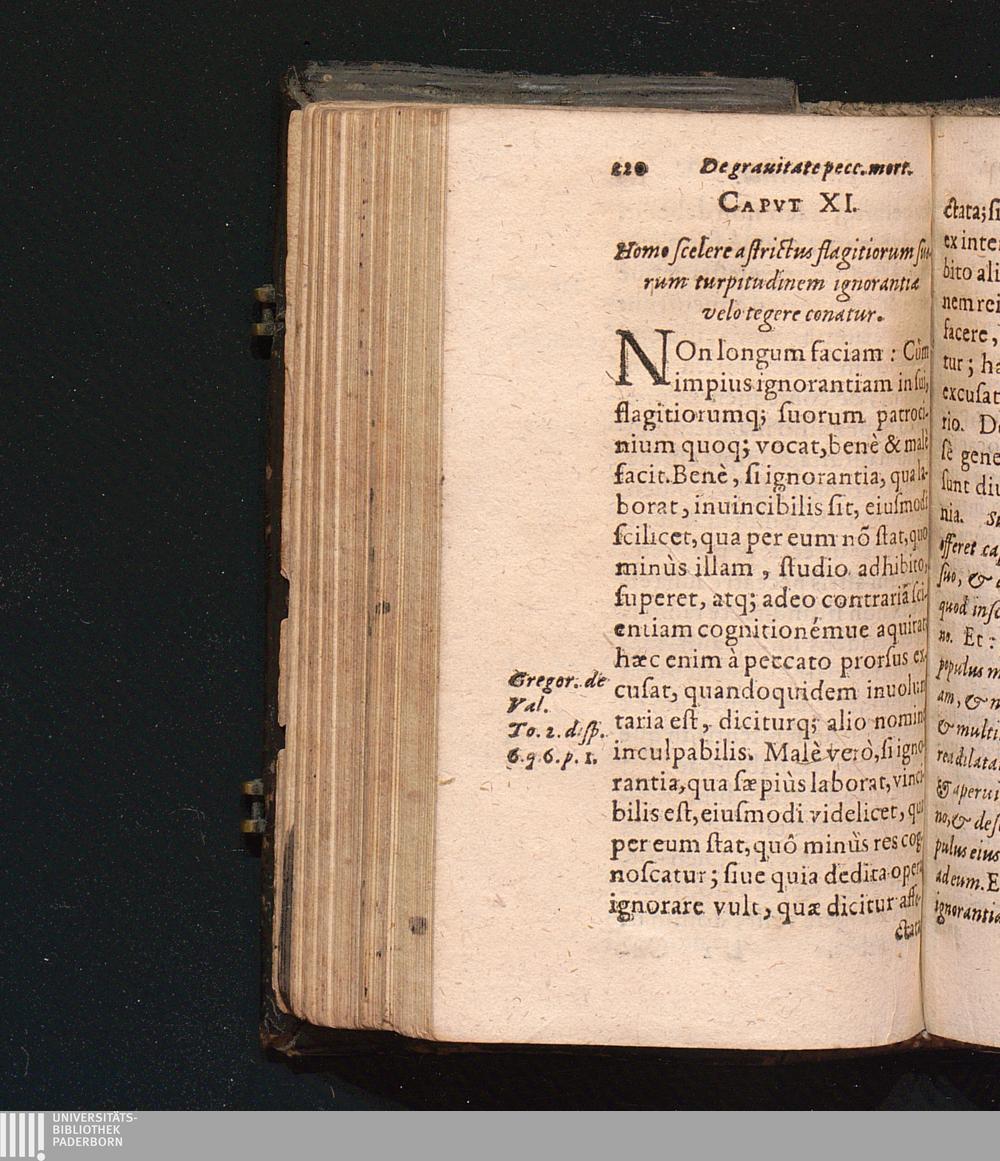 220 De grauitate pecc. mort.
CAPVT XI.
Homo scelere astrictus flagitiorum suo-
rum turpitudinem ignorantiæ
velo tegere conatur.
NOn longum faciam : Cùm
impius ignorantiam in sui,
flagitiorumq; suorum patroci-
nium quoq; vocat, benè & malè
facit. Benè, si ignorantia, qua la-
borat, inuincibilis sit, eiusmodi
scilicet, qua per eum nõ stat, quo
minùs illam, studio adhibito,
superet, atq; adeo contrariã sci-
entiam cognitionémue aquirat,
hæc enim à peccato prorsus ex-
cusat, quandoquidem inuolun
taria est, diciturq; alio nomine
inculpabilis. Malè verò, si igno-
rantia, qua sæpiùs laborat, vinci-
bilis est, eiusmodi videlicet, qua
per eum stat, quô minùs res cog-
noscatur; siue quia dedita opera
ignorare vult, quæ dicitur affe-
ctata
Gregor. de
Val.
To. 2. disp.
6. q. 6. p. 1.
ctata; si
ex inte
bito ali
nem rei
facere,
tur; hæ
excusat
rio. D
sè gene
sunt diu
nia.
offeret ca
suo, &
quod insc
no. Et :
populus m
am, &
& multi
rea dilata
& aperui
no, & des
pulus eius
ad eum. E
ignorantia
UNIVERSITÄTS-
BIBLIOTHEK
PADERBORN